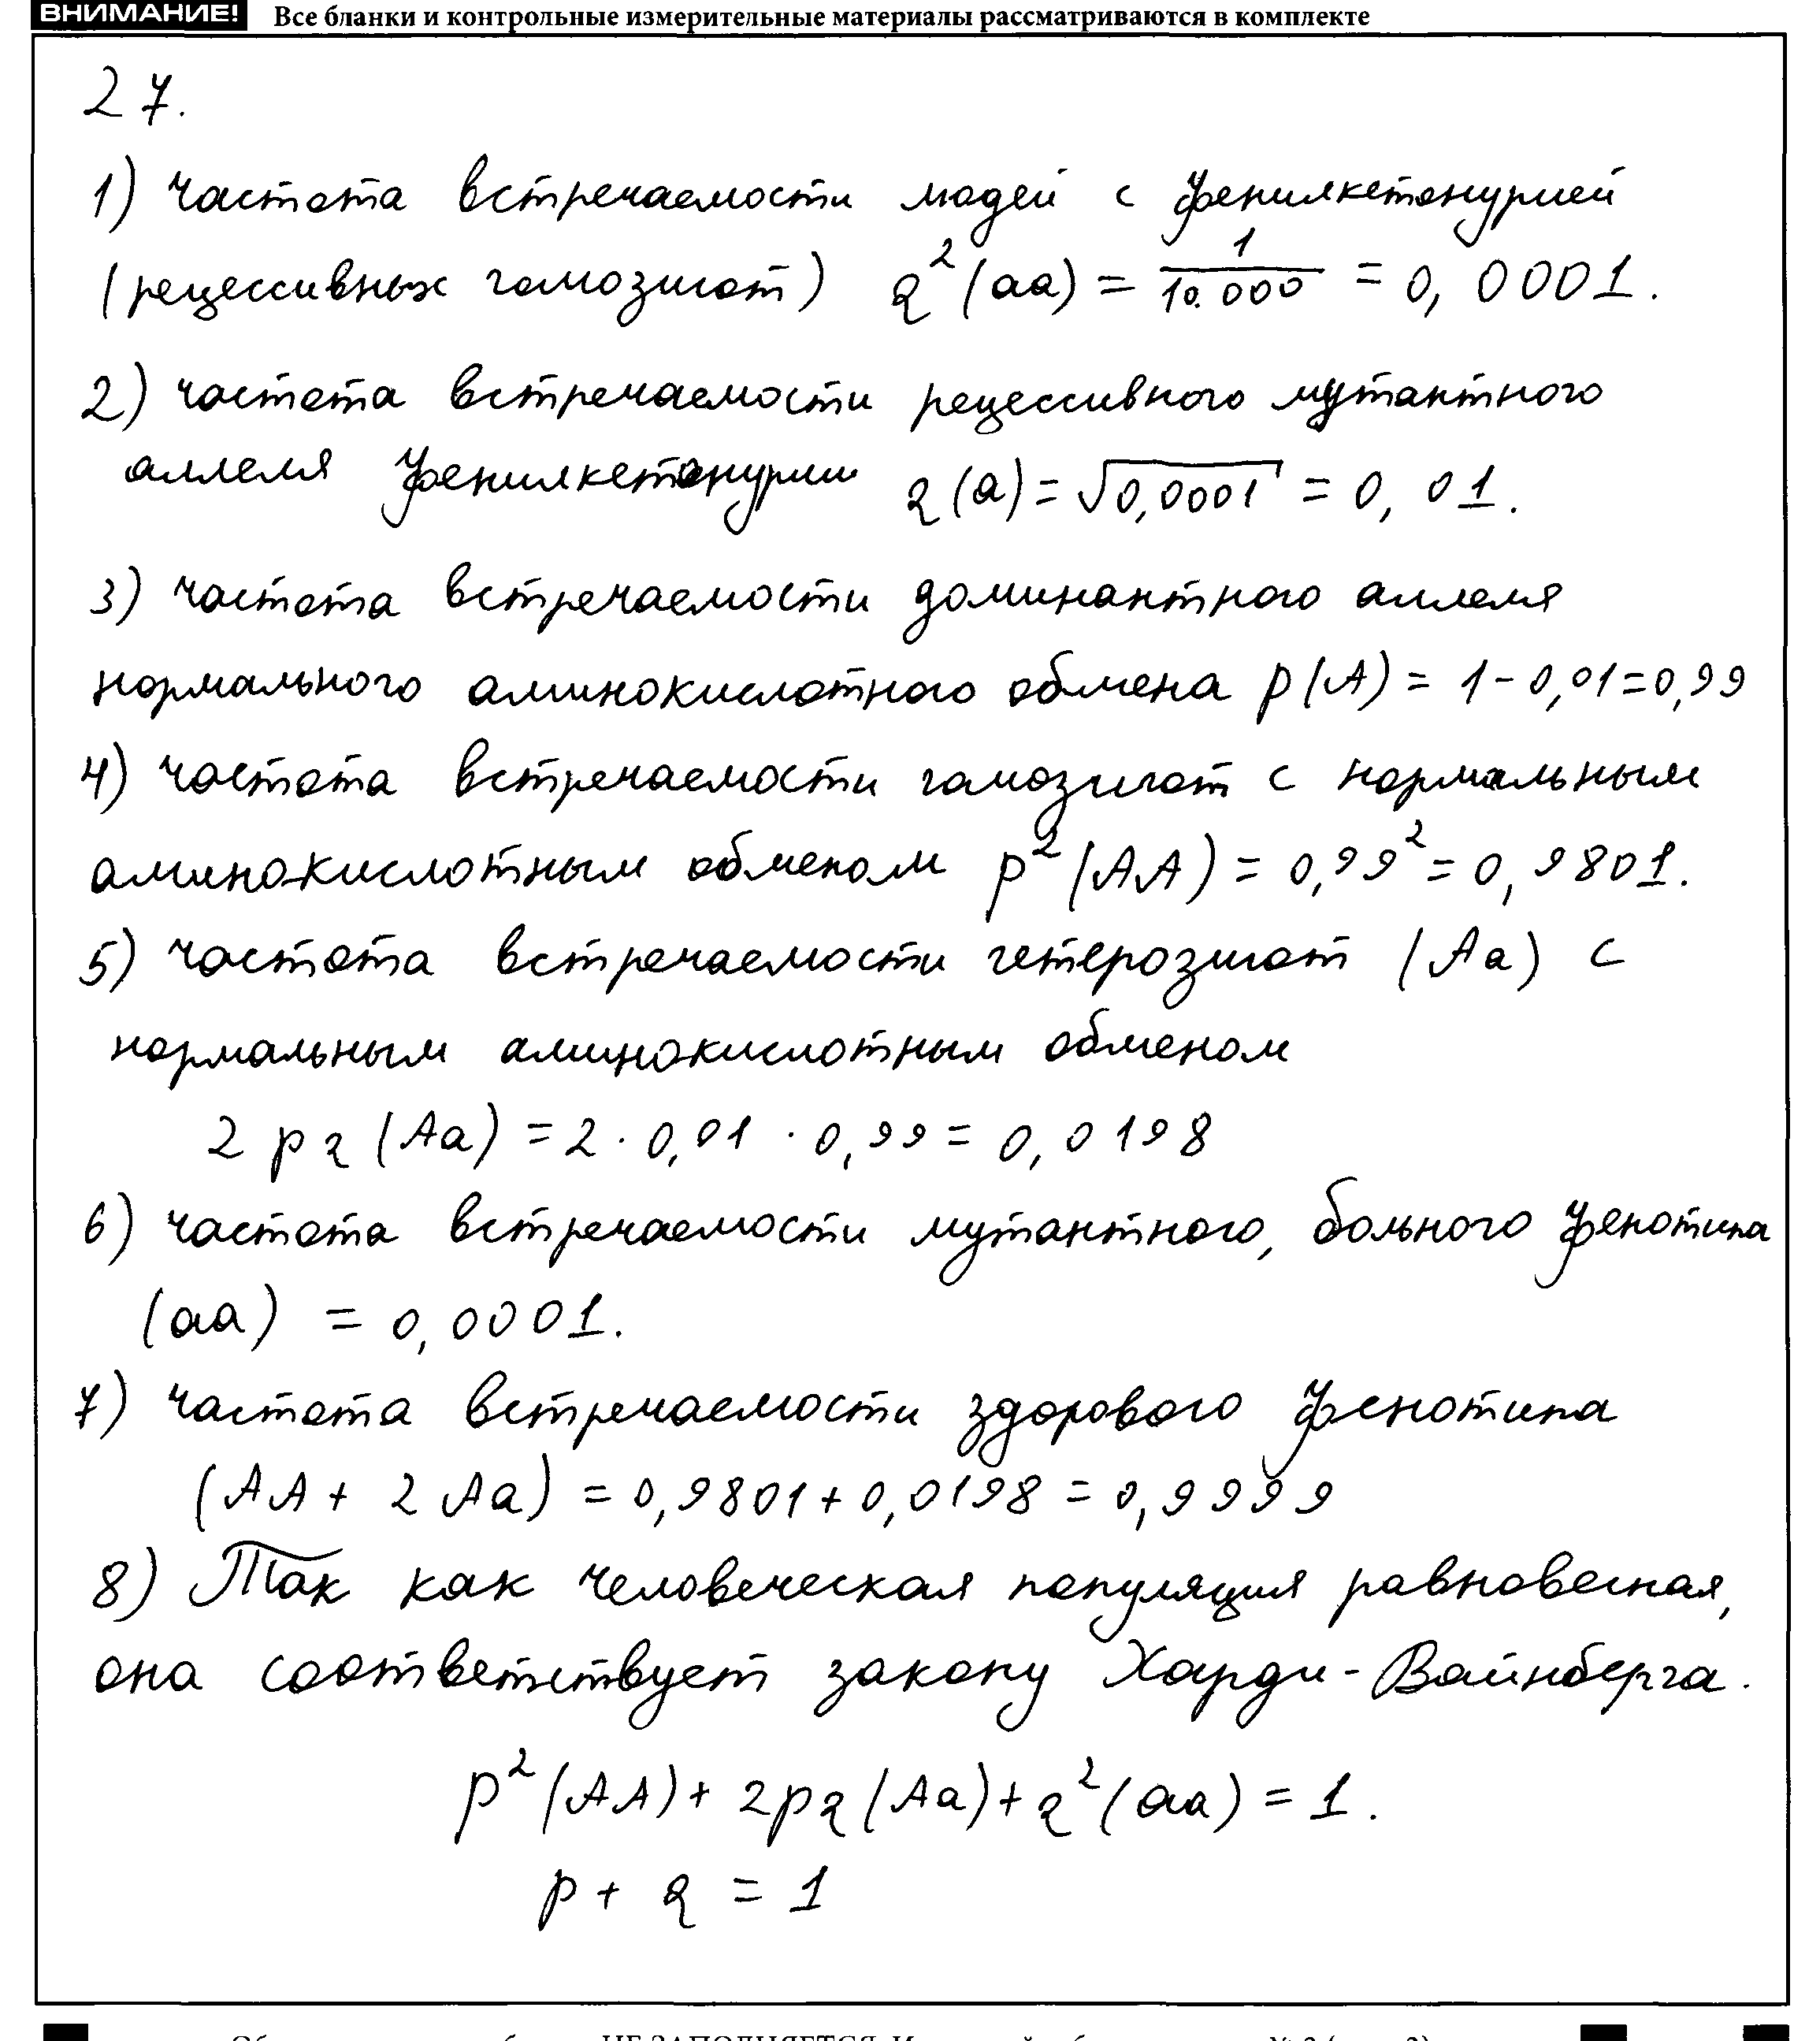 ВНИМАНИЕ! Все бланки и контрольные измерительные материалы рассматриваются в комплекте
27.
1) частота встречаемости людей с фенилкетонурией
(рецессивных гомозигот) q²(aa) = 1/10.000 = 0,0001.
2) частота встречаемости рецессивного мутантного
аллеля фенилкетонурии q(a) = √0,0001 = 0,01.
3) частота встречаемости доминантного аллеля
нормального аминокислотного обмена p(A) = 1 - 0,01 = 0,99
4) частота встречаемости гомозигот с нормальным
аминокислотным обменом p²(AA) = 0,99² = 0,9801.
5) частота встречаемости гетерозигот (Aa) с
нормальным аминокислотным обменом
2pq(Aa) = 2 · 0,01 · 0,99 = 0,0198
6) частота встречаемости мутантного, больного фенотипа
(aa) = 0,0001.
7) частота встречаемости здорового фенотипа
(AA + 2Aa) = 0,9801 + 0,0198 = 0,9999
8) Так как человеческая популяция равновесная,
она соответствует закону Харди-Вайнберга.
p²(AA) + 2pq(Aa) + q²(aa) = 1.
p + q = 1